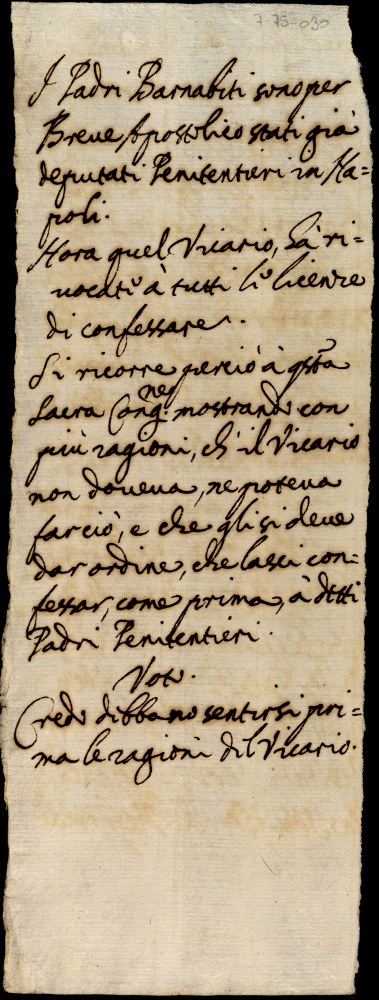 7-75-030
I Padri Barnabiti sono per
Breue Apostolico stati già
deputati Penitentieri in Na=
poli.
Hora quel Vicario, hà ri=
uocate à tutti le licenze
di confessare.
Si ricorre perciò à qsta
Sacra Congne mostrando con
più ragioni, ch'il Vicario
non doueua, ne poteua
far ciò, e che gli si deue
dar ordine, che lasci con=
fessar, come prima, à dtti
Padri Penitentieri.
Voto.
Credo debbano sentirsi pri=
ma le ragioni del Vicario.